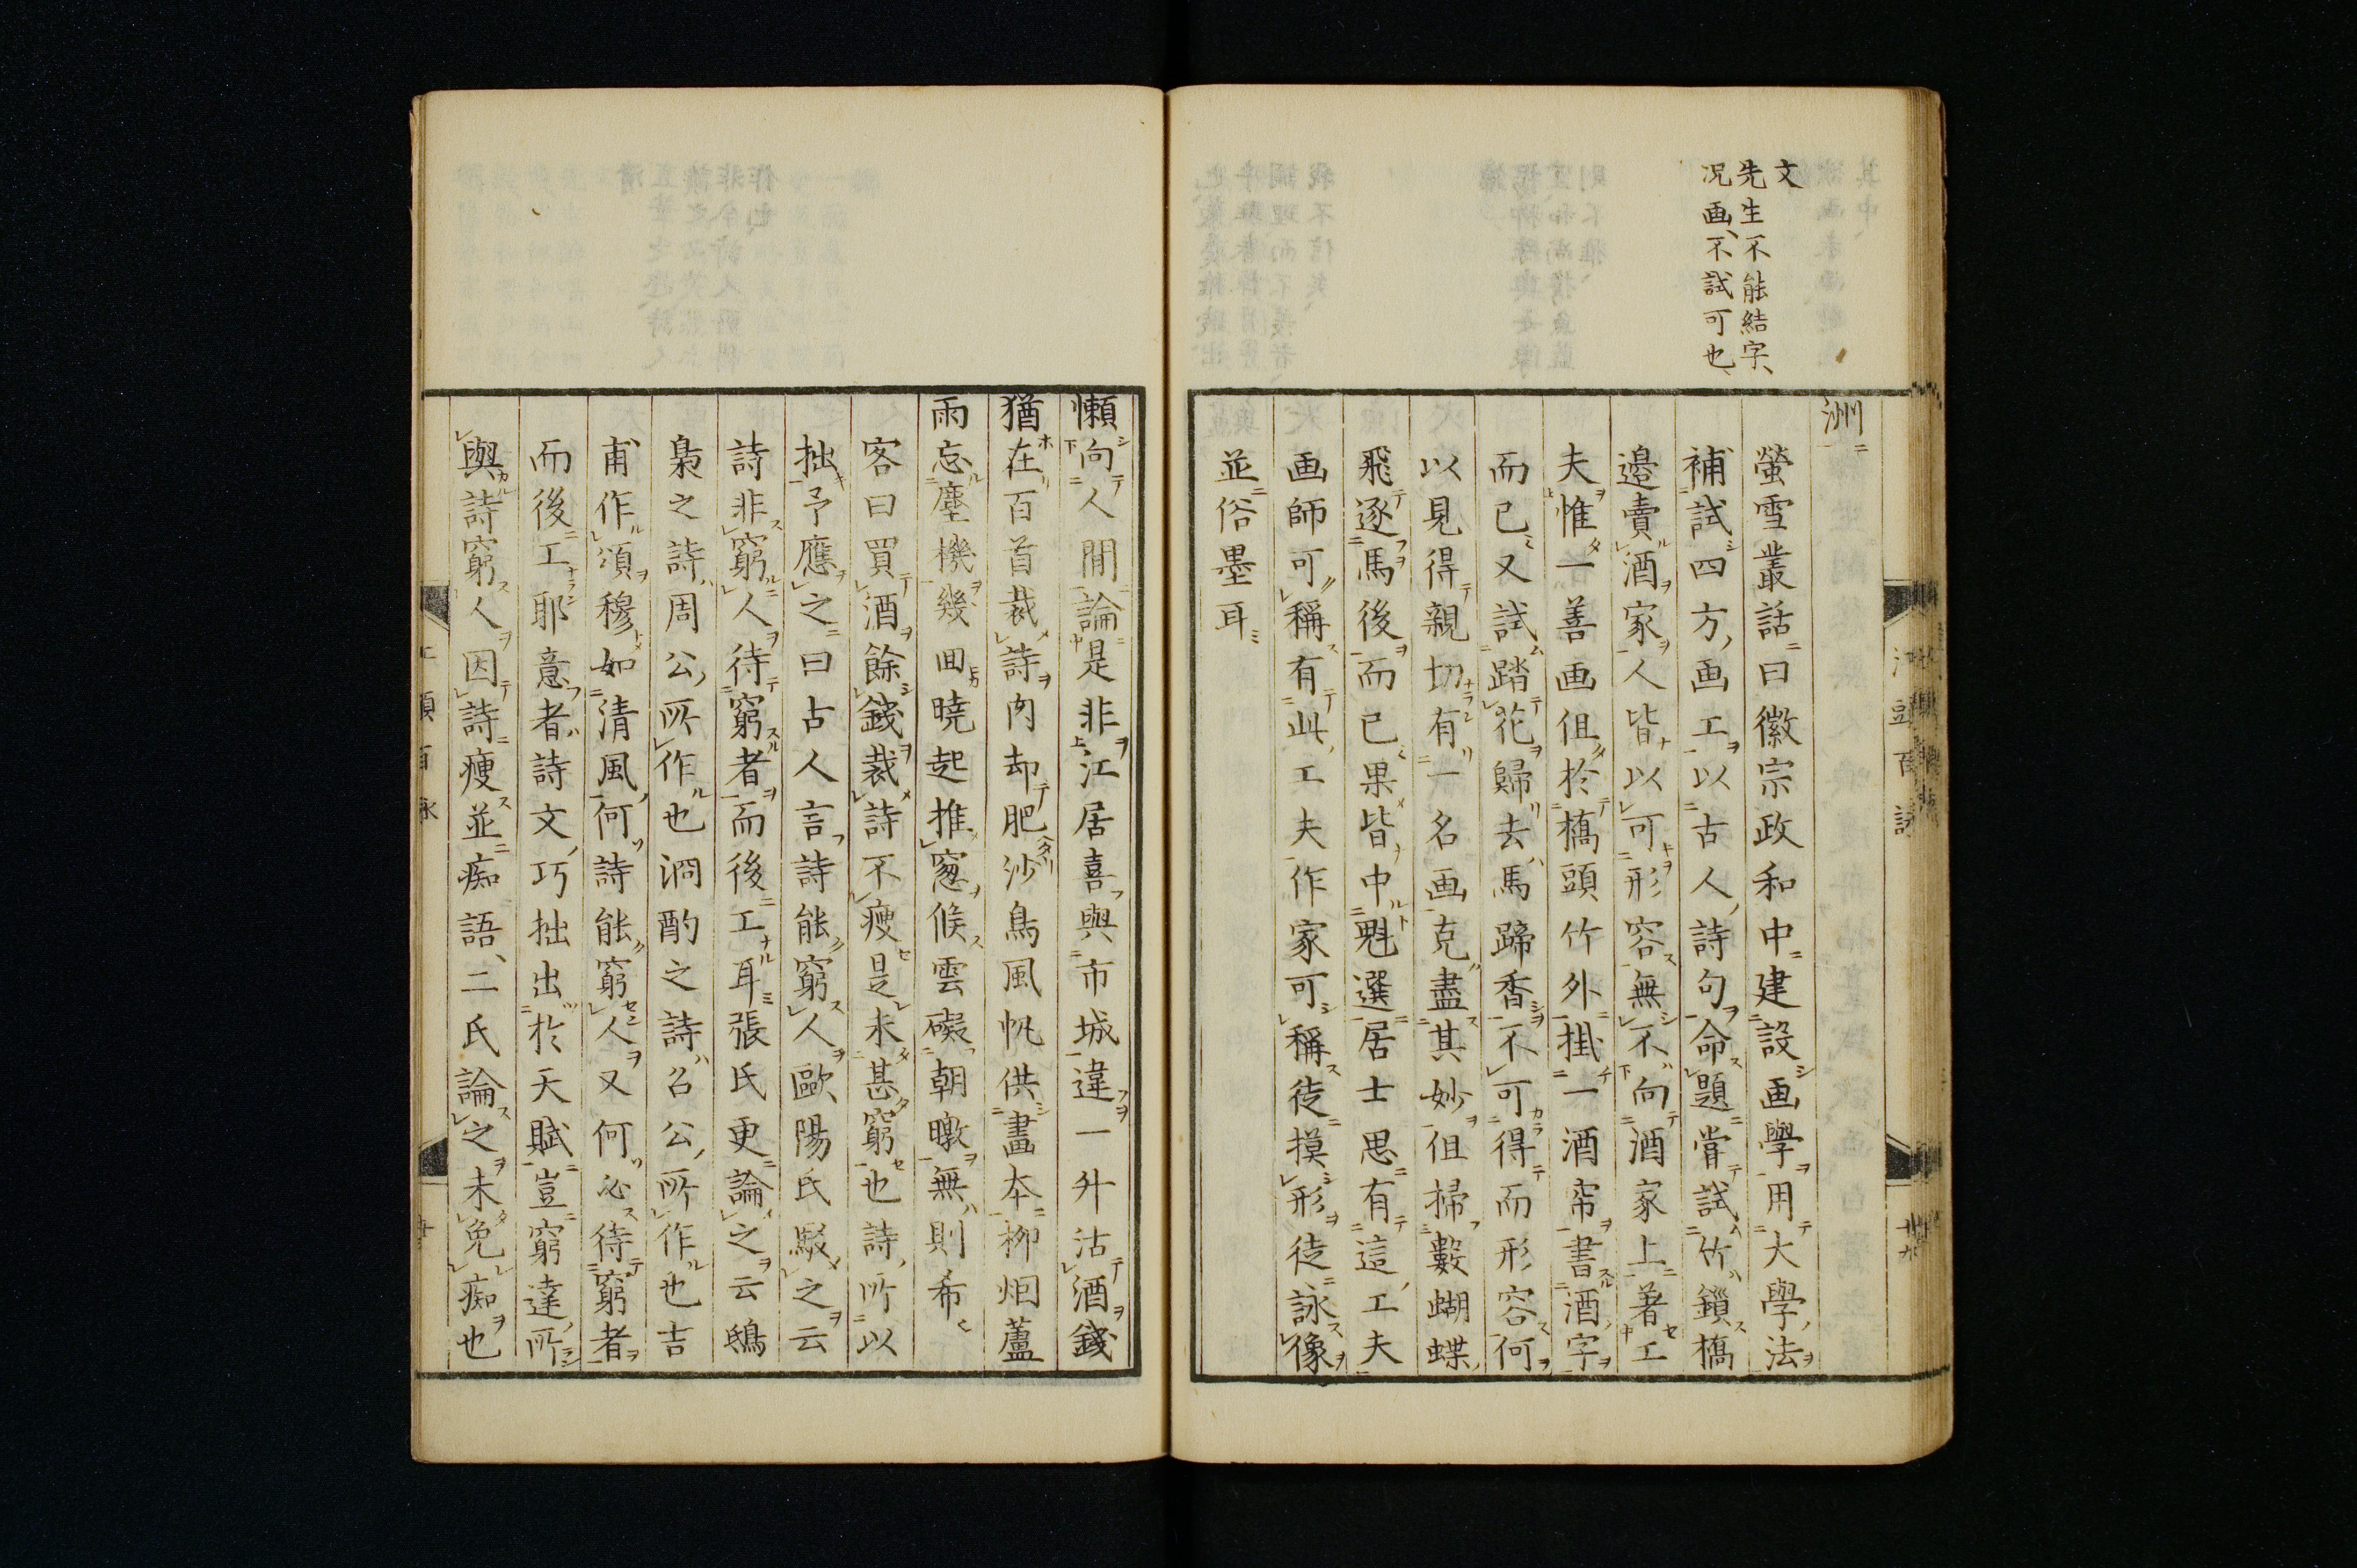 文
先生不能結字、
况画、不試可也、
洲
螢雪叢話曰徽宗政和中建設画學用大學法
補試四方画工以古人詩句命題嘗試竹鎖橋
邉賣酒家人皆以可形容無不向酒家上著工
夫惟一善画但於橋頭竹外掛一酒帘書酒字
而已又試踏花歸去馬蹄香不可得而形容何
以見得親切有一名画克盡其妙但掃數蝴蝶
飛逐馬後而已果皆中魁選居士思有這工夫
画師可稱有此工夫作家可稱徒摸形徒詠像
並俗墨耳
懶向人間論是非江居喜與市城違一升沽酒錢
猶在百首裁詩肉却肥沙鳥風帆供畵本柳烟蘆
雨忘塵機幾回曉起推窓候雲礙朝暾無則希
客曰買酒餘錢裁詩不瘦是未甚窮也詩所以
拙予應之曰古人言詩能窮人歐陽氏駁之云
詩非窮人待窮者而後工耳張氏更論之云鴟
梟之詩周公所作也泂酌之詩召公所作也吉
甫作頌穆如清風何詩能窮人又何必待窮者
而後工耶意者詩文巧拙出於天賦豈窮達所
與詩窮人因詩瘦並痴語、二氏論之未免痴也